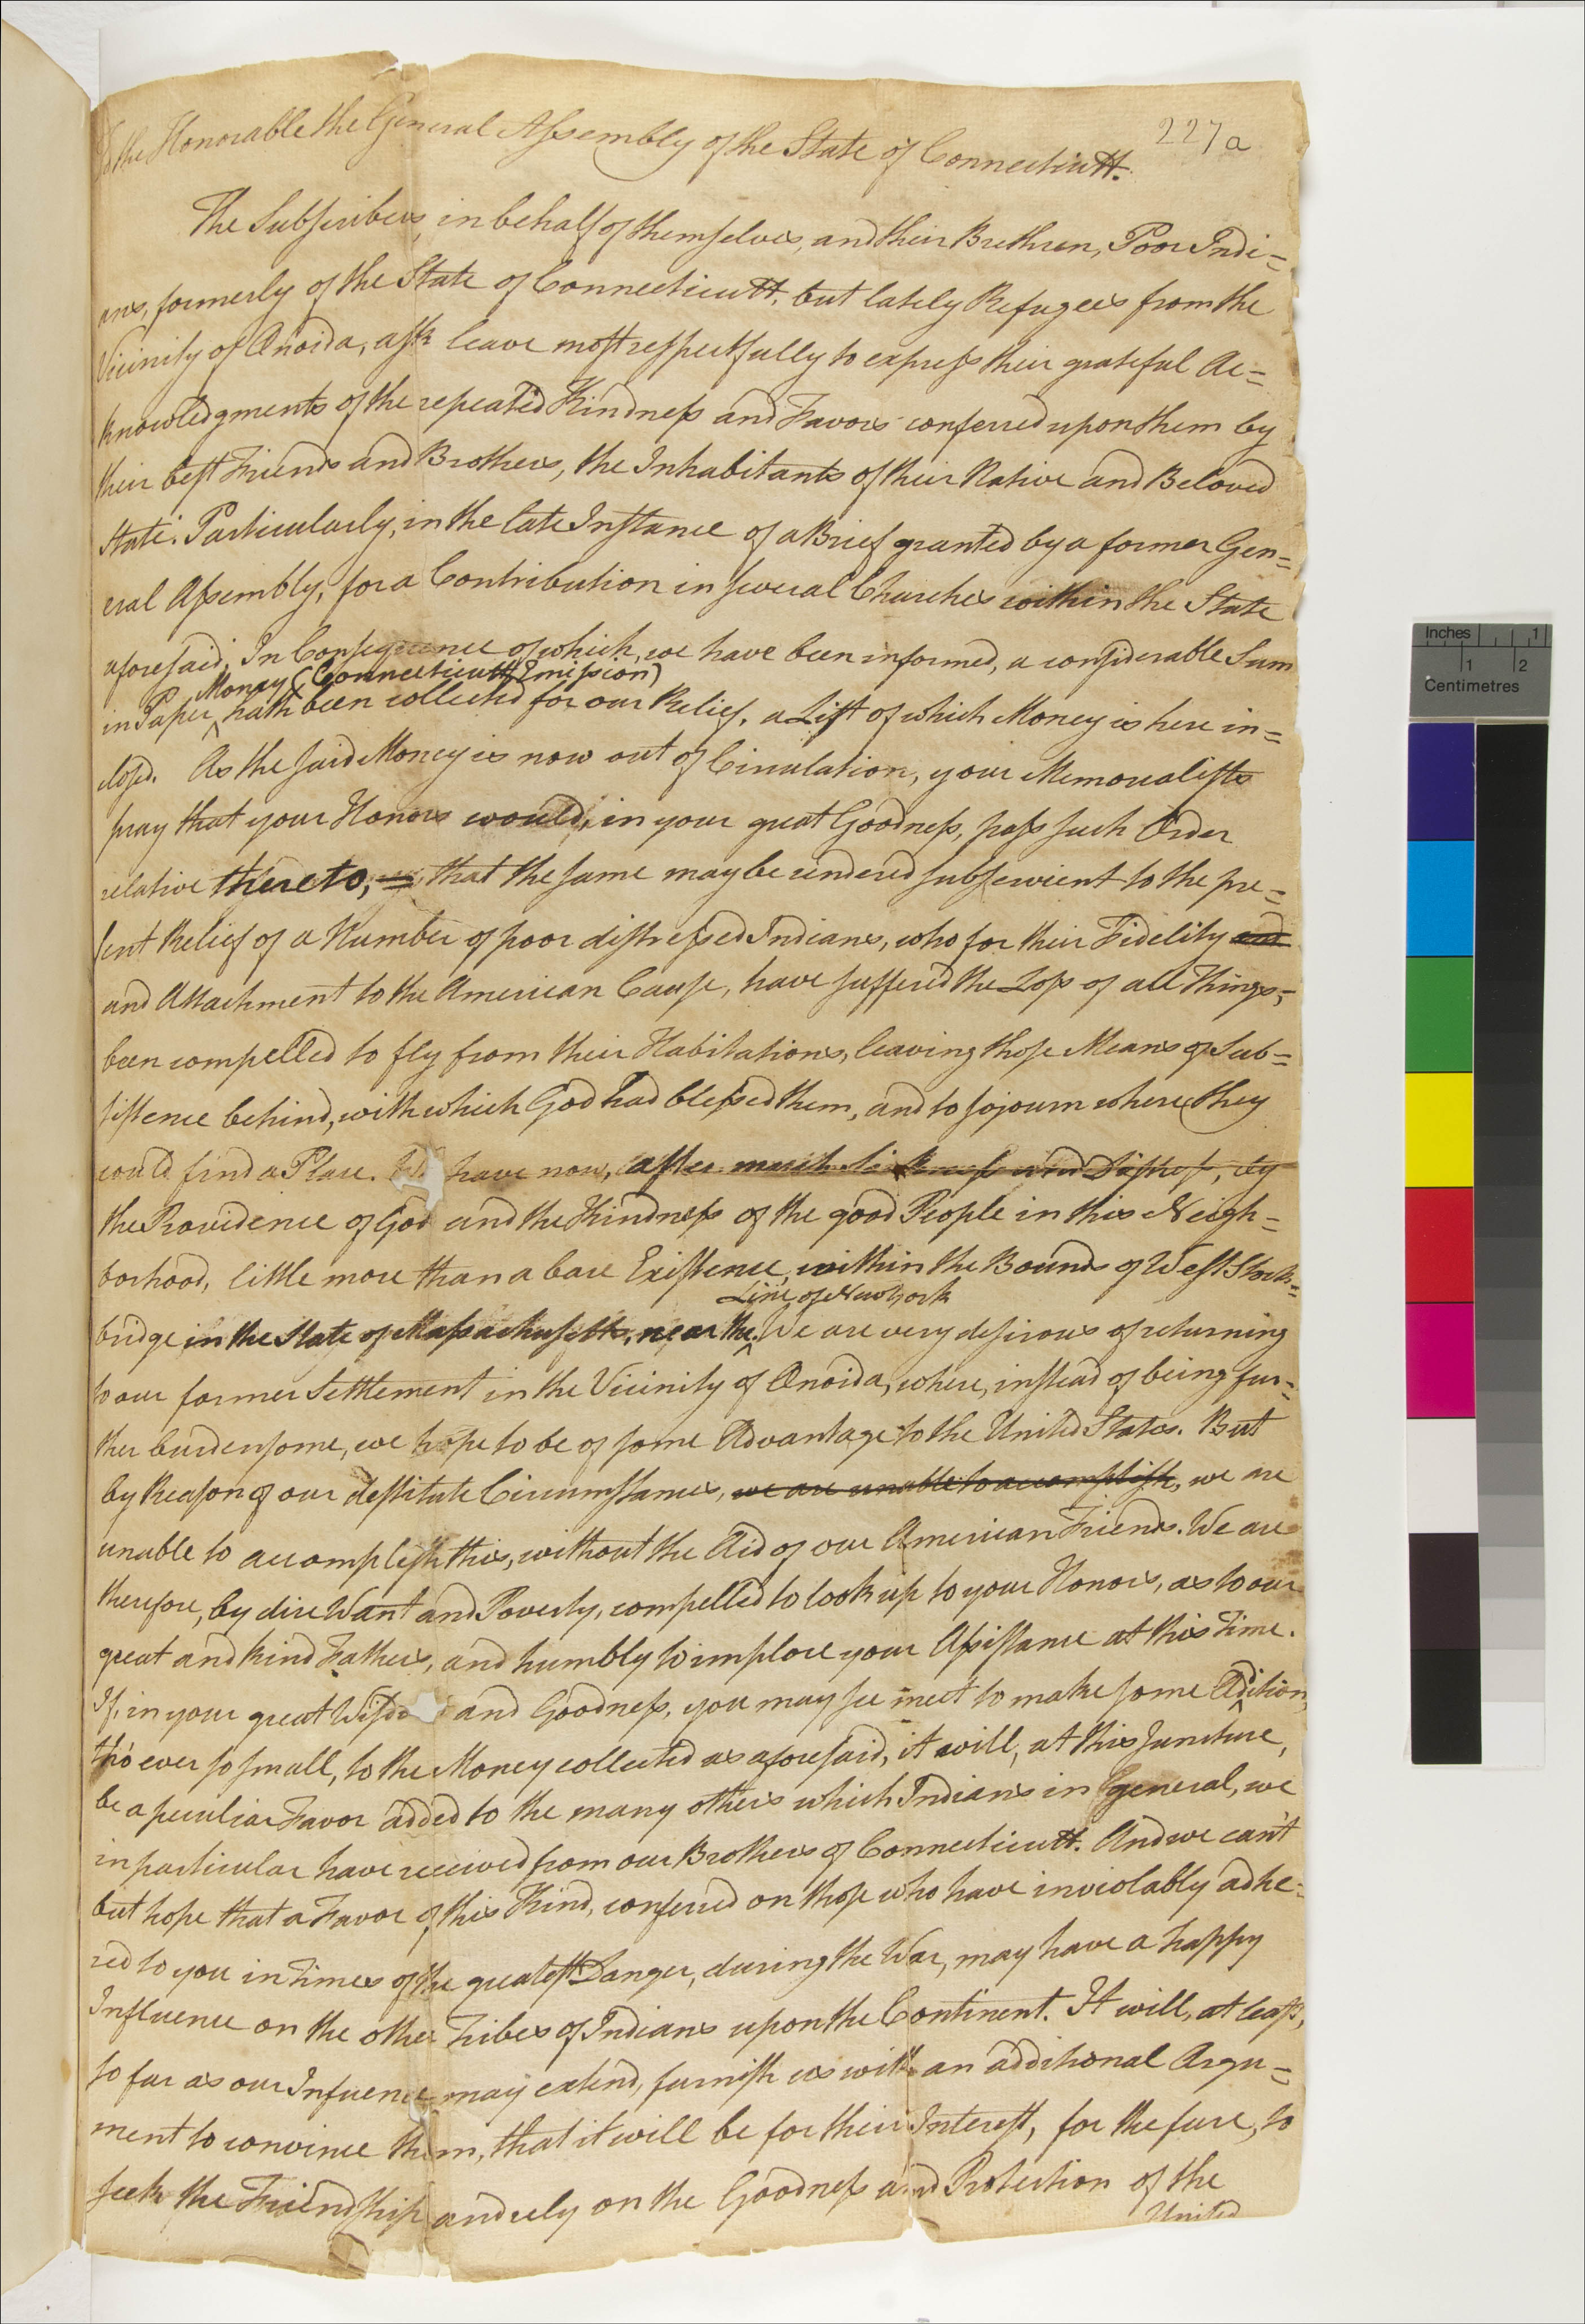 227a
To the Honorable the General Assembly of the State of Connecticutt.
The Subscribers, in behalf of themselves, and their Brethren, Poor Indi=
ans, formerly of the State of Connecticutt, but lately Refugees from the
Vicinity of Onoida, ask leave most respectfully to express their grateful Ac=
knowledgments of the repeated Kindness and Favors conferred upon them by
their best Friends and Brothers, the Inhabitants of their Native and Beloved
State. Particularly, in the late Instance of a Brief granted by a former Gen=
eral Assembly, for a Contribution in several Churches within the State
aforesaid; In Consequence of which, we have been informed, a considerable Sum
Money (Connecticutt Emission)
in Paper ^ hath been collected for our Relief, a List of which Money is here in=
closd. As the said Money is now out of Circulation, your Memorialists
pray that your Honors would, in your great Goodness, pass such Order
relative thereto, = that the same may be rendered subservient to the pre=
sent Relief of a Number of poor distressed Indians, who for their Fidelity and
and Attachment to the American Cause, have suffered the Loss of all Things,=
been compelled to fly from their Habitations, leaving those Means of Sub=
sistence behind, with which God had blessed them, and to sojourn where they
could find a Place. We have now, after much Sickness and Distress, by
the Providence of God and the Kindness of the good People in this Neigh=
borhood, little more than a bare Existence, within the Bounds of West Stock=
Line of New York
bridge in the State of Massachusetts, near the ^. We are very desirous of returning
to our former Settlement in the Vicinity of Onoida, where, instead of being fur=
ther burdensome, we hope to be of some Advantage to the United States. But
by Reason of our destitute Circumstances, we are unable to accomplish, we are
unable to accomplish this, without the Aid of our American Friends. We are
therefore, by dire Want and Poverty, compelled to look up to your Honors, as to our
great and kind Fathers, and humbly to implore your Assistance at this Time.
If, in your great Wisdo and Goodness, you may see meet to make some Addition,
tho' ever so small, to the Money collected as aforesaid, it will, at this Juncture,
be a peculiar Favor added to the many others which Indians in general, we
in particular have received from our Brothers of Connecticutt. And we can't
but hope that a Favor of this Kind, conferred on those who have inviolably adhe=
red to you in Times of the greatest Danger, during the War, may have a happy
Influence on the other Tribes of Indians upon the Continent. It will, at least,
so far as our Infuence may extend, furnish us with an additional Argu=
ment to convince them, that it will be for their Interest, for the fure, to
seek the Friendship and rely on the Goodness and Protection of the
United